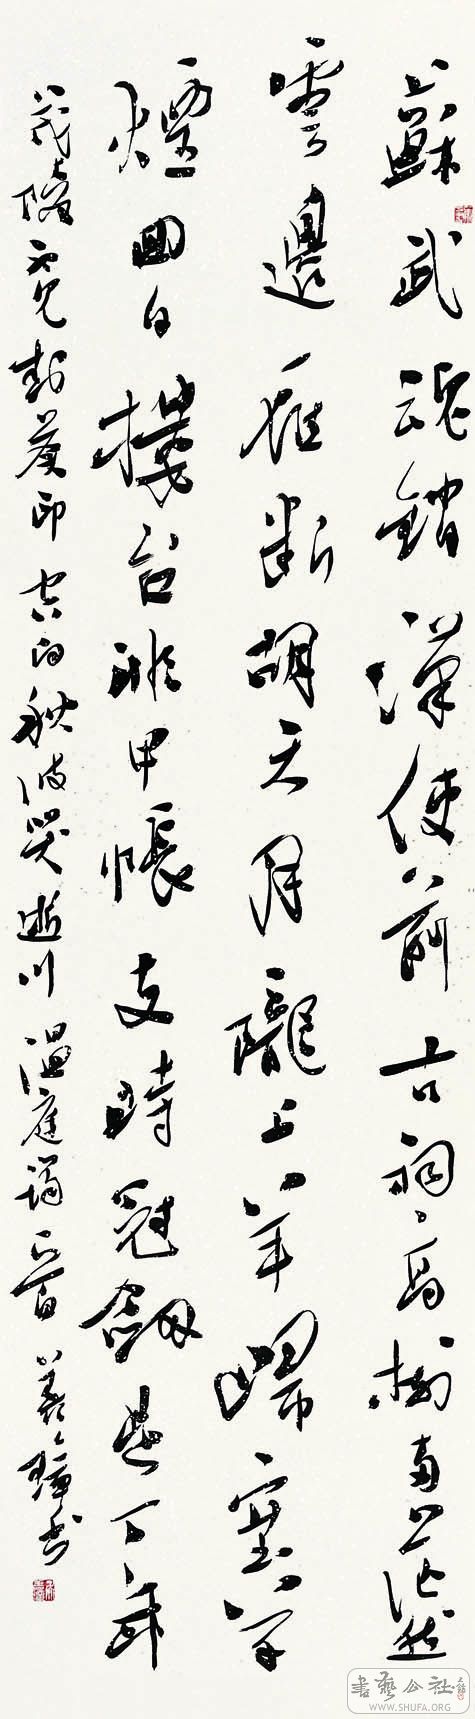 蘇武魂銷漢使前古祠高樹兩茫然
雲邊雁斷胡天月隴上羊歸塞草
煙回日樓台非甲帳去時冠劍是丁年
茂陵不見封侯印空向秋波哭逝川 温庭筠 书
書藝公社
WWW.SHUFA.ORG